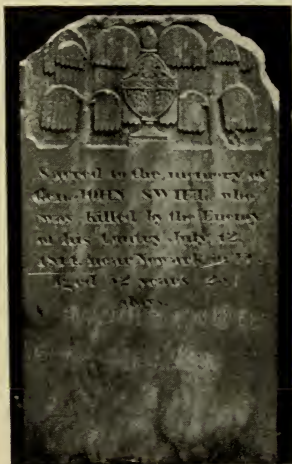 Sacred to the memory of
Gen. JOHN SWIFT, who
was killed by the Enemy
of his Contry July 12,
1814, near Newark in
Aged 52 years
days.